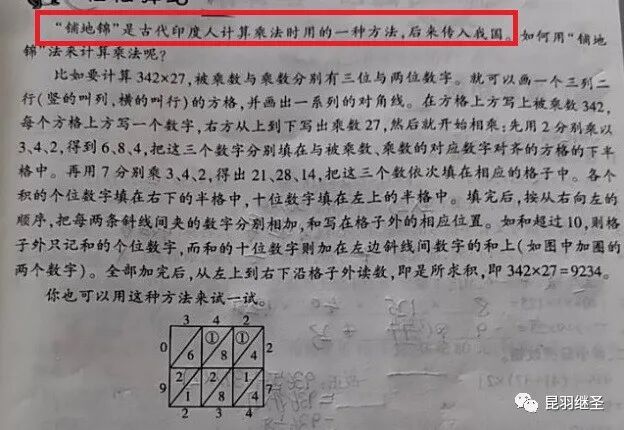 “铺地锦”是古代印度人计算乘法时用的一种方法,后来传入我国。如何用“铺地
锦”法来计算乘法呢?
比如要计算342×27,被乘数与乘数分别有三位与两位数字。就可以画一个三列二
行(竖的叫列,横的叫行)的方格,并画出一系列的对角线。在方格上方写上被乘数342,
每个方格上方写一个数字,右方从上到下写出乘数27,然后就开始相乘:先用2分别乘以
3、4、2,得到6、8、4,把这三个数字分别填在与被乘数、乘数的对应数字对齐的方格的下半
格中。再用7分别乘3、4、2,得出21、28、14,把这三个数依次填在相应的格子中。各个
积的个位数字填在右下的半格中,十位数字填在左上的半格中。填完后,按从右向左的
顺序,把每两条斜线间夹的数字分别相加,和写在格子外的相应位置。如和超过10,则格
子外只记和的个位数字,而和的十位数字则加在左边斜线间数字的和上(如图中加圈的
两个数字)。全部加完后,从左上到右下沿格子外读数,即是所求积,即342×27=9234。
你也可以用这种方法来试一试。
3 4 2
0 6 ① 8 ① 4 2
9 2 1 2 8 1 4 7
2 3 4
昆羽继圣